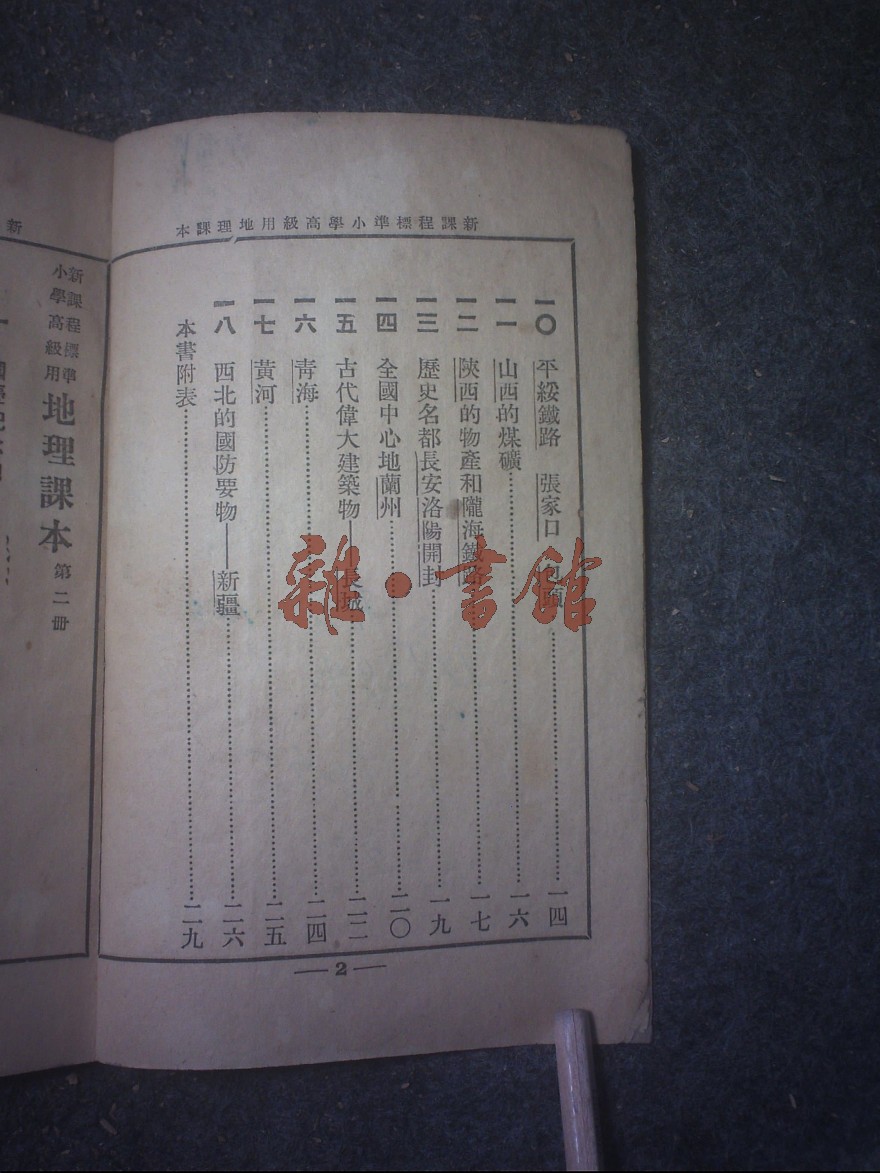 新課程標準小學高級用地理課本
一〇 平綏鐵路 張家口 包頭……一四
一一 山西的煤礦……一六
一二 陝西的物產和隴海鐵路……一七
一三 歷史名都長安洛陽開封……一九
一四 全國中心地蘭州……二〇
一五 古代偉大建築物——長城……二二
一六 靑海……二四
一七 黃河……二五
一八 西北的國防要物——新疆……二六
本書附表……二九
— 2 —
新
新課程標準
小學高級用
地理課本 第二冊
雜·書館